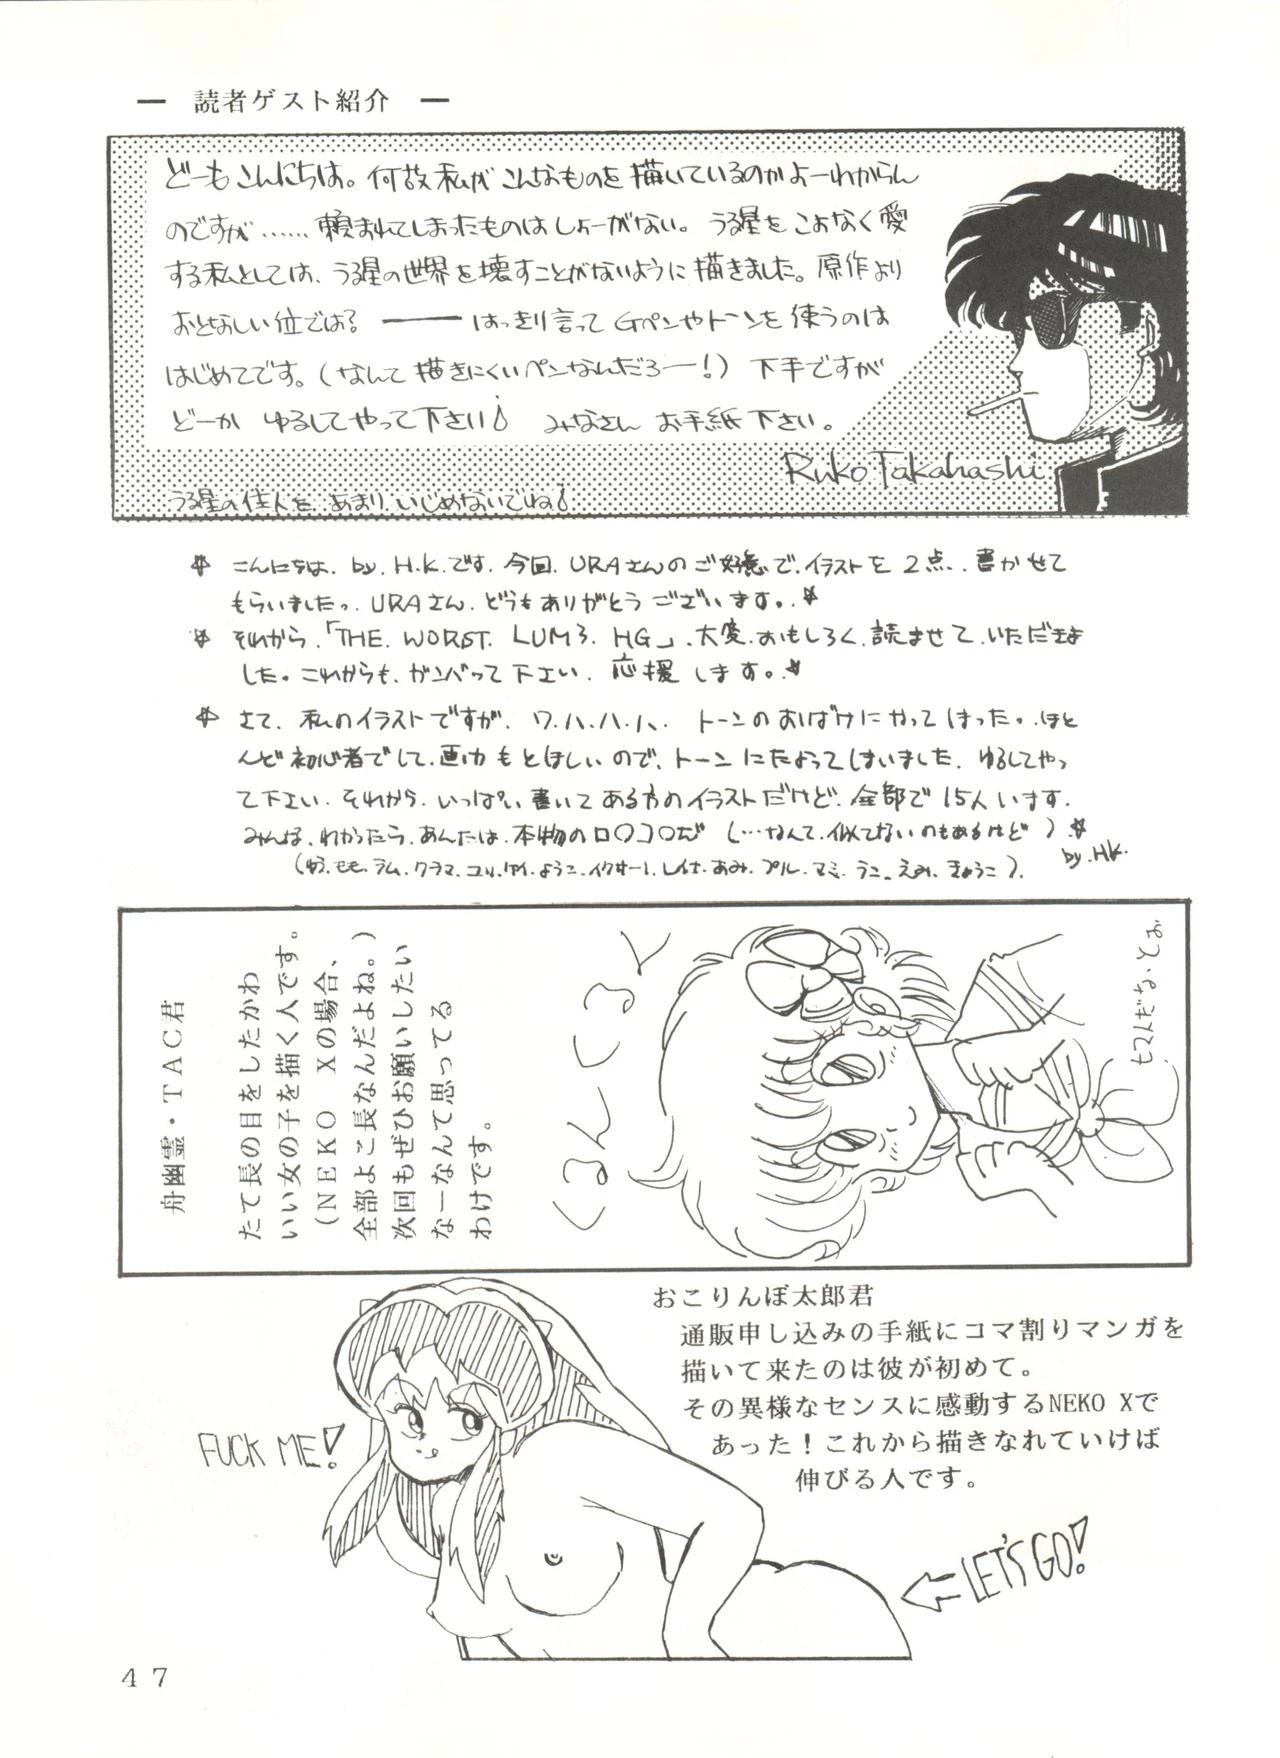 ― 読者ゲスト紹介 ―
どーもこんにちは。何故私がこんなものを描いているのかよーわからん
のですが……頼まれてしまったものはしょーがない。うる星をこよなく愛
する私としては、うる星の世界を壊すことがないように描きました。原作より
おとなしい位では? ―― はっきり言ってGペンやトーンを使うのは
はじめてです。(なんて描きにくいペンなんだろー!) 下手ですが
どーか ゆるしてやって下さい みなさん お手紙下さい。
Ruko Takahashi
うる星の住人を あまり いじめないでね
☆ こんにちは. by. H.K.です. 今回. URAさんのご好意で.イラストを2点. 書かせて
もらいましたっ. URAさん. どうもありがとうございます.☆
☆ それから.「THE. WORST. LUM3. HG」.大変.おもしろく.読ませて.いただきま
した。これからも.ガンバって下さい. 応援します.☆
☆ さて. 私のイラストですが. ワ.ハ.ハ.ハ. トーンのおばけにやってしまった。.ほと
んど初心者でして.画力もとぼしいので.トーンにたよってしまいました. ゆるしてやっ
て下さい. それから. いっぱい書いてある方のイラストだけど. 全部で15人います.
みんな.わかったら.あんたは.本物のロ〇コ〇だ (…なんて.似てないのもあるけど).☆
by.H.K.
(ゆう.モモ.ラム.クラマ.ユリ.ゆい.ようこ.イクサー1.レイナ.あみ.プル.マミ.うこ.えみ.きょうこ).
舟幽霊・TAC君
たて長の目をしたかわ
いい女の子を描く人です。
(NEKO Xの場合、
全部よこ長なんだよね。)
次回もぜひお願いしたい
なーなんて思ってる
わけです。
くるんくるん
おこりんぼ太郎君
通販申し込みの手紙にコマ割りマンガを
描いて来たのは彼が初めて。
その異様なセンスに感動するNEKO Xで
あった!これから描きなれていけば
伸びる人です。
FUCK ME!
LET'S GO!
47